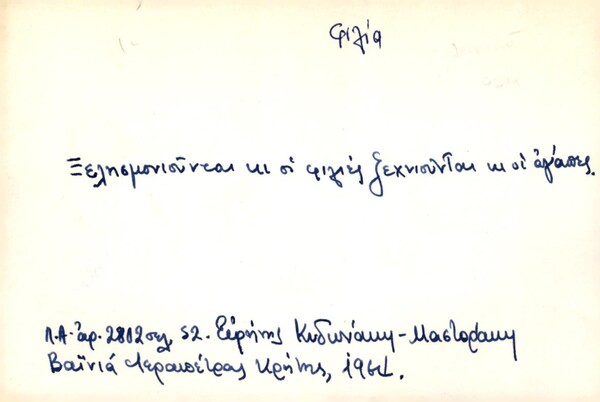 Φιλία
Ξελησμονιοῦνται κι οἱ φιλιές ξεχνιοῦνται κι οἱ ἀγάπες.
Λ.Α. ἀρ. 2812 σελ. 52. Εἰρήνης Κυδωνάκη-Μαστοράκη
Βαϊνιά Ἱεραπέτρας Κρήτης, 1964.